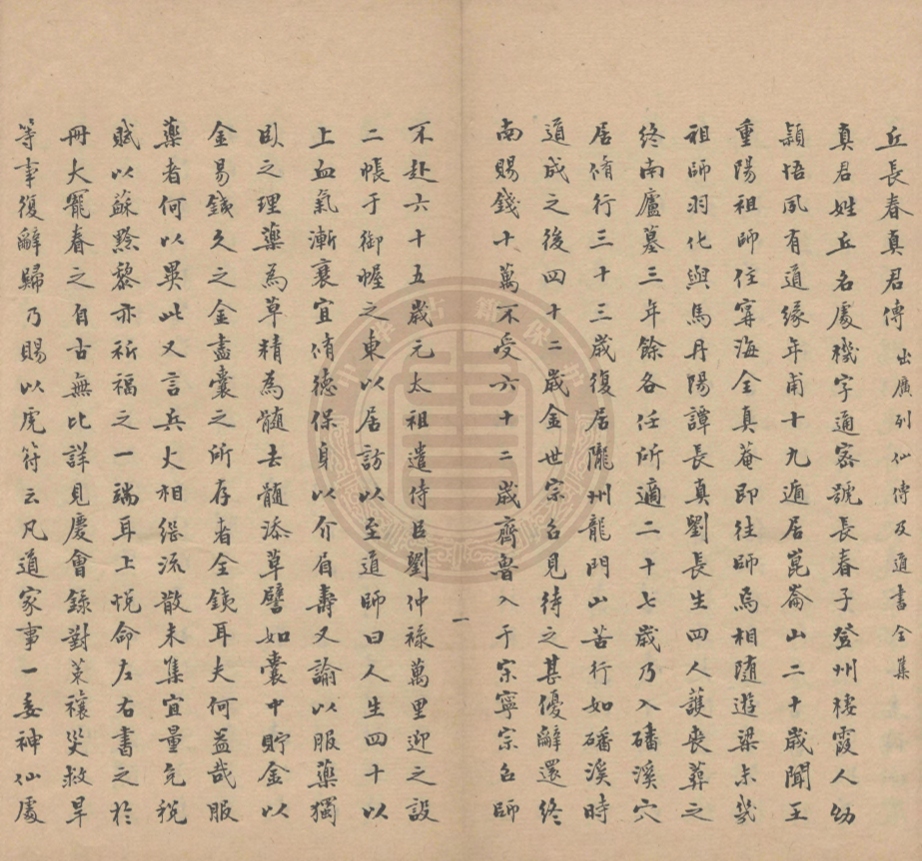 丘長春真君傳 出廣列仙傳及道書全集
真君姓丘名處機字通密號長春子登州棲霞人幼
穎悟夙有道緣年甫十九遁居崑崙山二十歲聞王
重陽祖師住寧海全真菴即往師焉相随遊梁未幾
祖師羽化與馬丹陽譚長真劉長生四人護喪葬之
終南廬墓三年餘各任所適二十七歲乃入磻溪穴
居脩行三十三歲復居隴州龍門山苦行如磻溪時
道成之後四十二歲金世宗召見待之甚優辭還終
南賜錢十萬不受六十二歲齊魯入于宋寧宗召師
不赴六十五歲元太祖遣侍臣劉仲祿萬里迎之設
二帳于御幄之東以居訪以至道師曰人生四十以
上血氣漸衰宜脩德保身以介眉壽又諭以服藥獨
卧之理藥為草精為髓去髓添草譬如囊中貯金以
金易鐵久之金盡囊之所存者全鐵耳夫何益哉服
藥者何以異此又言兵火相繼流散未集宜量免稅
賦以蘇黔黎亦祈福之一端耳上悅命左右書之於
冊大寵眷之自古無比詳見慶會錄對策禳災救旱
等事復辭歸乃賜以虎符云凡道家事一委神仙處
一